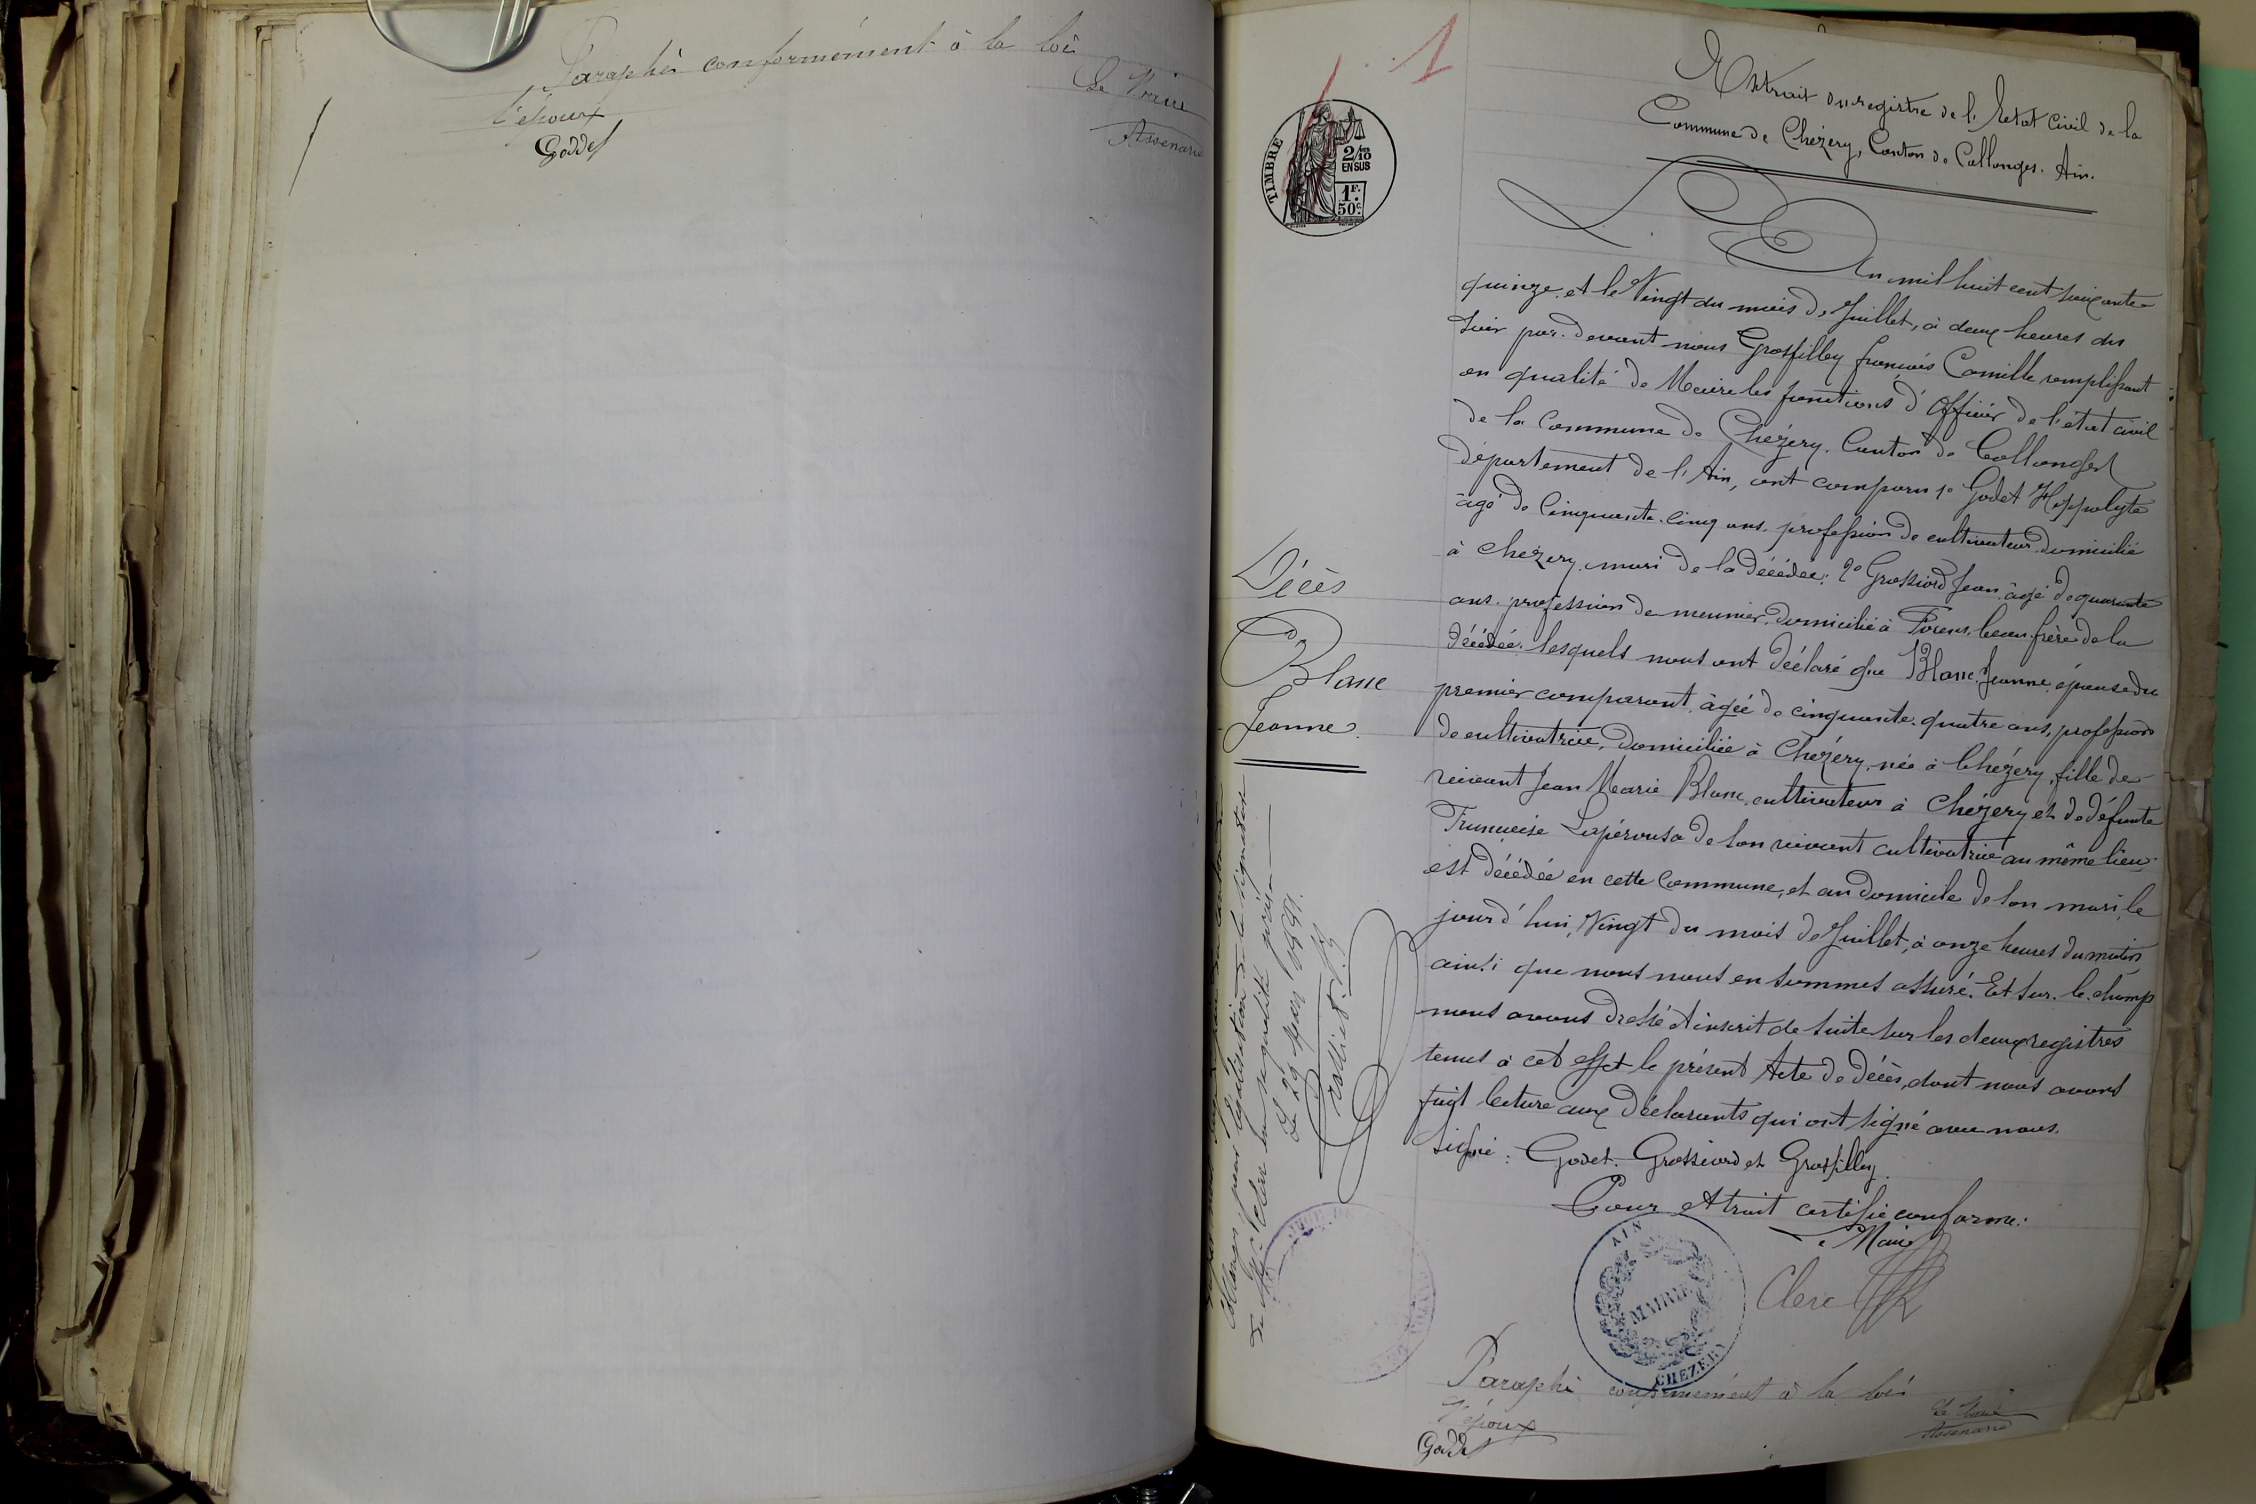 Paraphé conformément à la loi
L'époux
Goddet
Le Maire
1
TIMBRE
2/10
EN SUS
1F.
50c.
Extrait du registre de l'Etat Civil de la
Commune de Chézery, Canton de Collonges. Ain.
L'An mil huit cent soixante
quinze et le Vingt du mois de Juillet, à deux heures du
soir par-devant nous Grosfilley françois Camille remplissant
en qualité de Maire les fonctions d'Officier de l'état civil
de la Commune de Chézery. Canton de Collonges
département de l'Ain, ont comparu 1o Godet Hyppolyte
âgé de Cinquante-cinq ans, profession de cultivateur domicilié
à chézery, mari de la décédée; 2o Grossiord Jean, âgé de quarante
ans, profession de meunier, domicilié à Forens, beau-frère de la
décédée, lesquels nous ont déclaré que Blanc Jeanne épouse du
premier comparant, âgée de cinquante-quatre ans, profession
de cultivatrice, domiciliée à Chézery, née à Chézery, fille de
vivant Jean Marie Blanc, cultivateur à Chézery et de défunte
Francoise Lapérousa de son vivant cultivatrice au même lieu
est décédée en cette Commune, et au domicile de son mari, le
jourd'hui, Vingt du mois de Juillet, à onze heures du matin
ainsi que nous nous en sommes assuré. Et sur-le-champ
nous avons dressé et inscrit de suite sur les deux registres
tenus à cet effet le présent Acte de décès, dont nous avons
fait lecture aux déclarants qui ont signé avec nous.
Signé: Godet. Grossiord et Grosfilley.
Pour extrait certifié conforme:
Le Maire
Clerc
Décès
Blanc
Jeanne
pour légalisation de la signature
de Mr Clerc en sa qualité
Le 29 1891.
AIN
MAIRIE
CHEZERY
Paraphé conformément à la loi
L'époux
Goddet
Le Maire